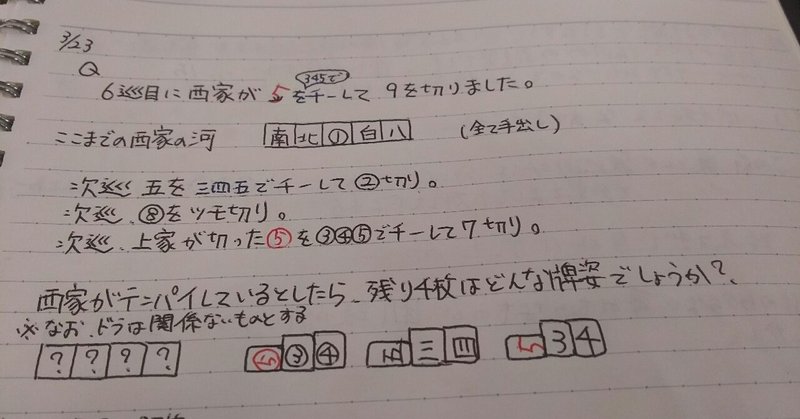 3/23
Q
345で
6巡目に西家が5をチーして9を切りました。
ここまでの西家の河 南北①白八 (全て手出し)
次巡 五を三四五でチーして②切り。
次巡、⑧をツモ切り。
次巡、上家が切った⑤を③④⑤でチーして7切り。
西家がテンパイしているとしたら、残り4枚はどんな牌姿でしょうか?
※なお、ドラは関係ないものとする
???? ⑤③④ 五三四 534